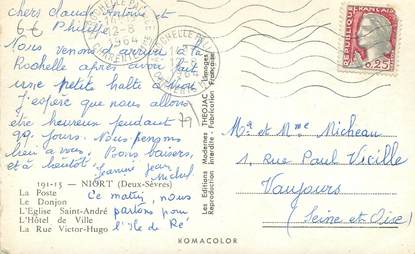 chers Claude Antoine et
et Philippe
Nous venons d'arriver à la
Rochelle après avoir fait
une petite halte à Niort
J'espère que nous allons
être heureux pendant
jours. Nous pensons
bien à vous. Bons baisers,
et à bientôt. Jeanine Jean
Michel
191-15 — NIORT (Deux-Sèvres)
La Poste
Le Donjon
L'Eglise Saint-André
L'Hôtel de Ville
La Rue Victor-Hugo
Ce matin, nous
partons pour
l'Ile de Ré
Les Editions Modernes "THEOJAC" Limoges
Reproduction interdite - Fabrication Française
LA ROCHELLE
12-8
1964
REPUBLIQUE FRANÇAISE
0,25
Ma et Mme Micheau
1, Rue Paul Vieille
Vaujours
(Seine et Oise)
KOMACOLOR